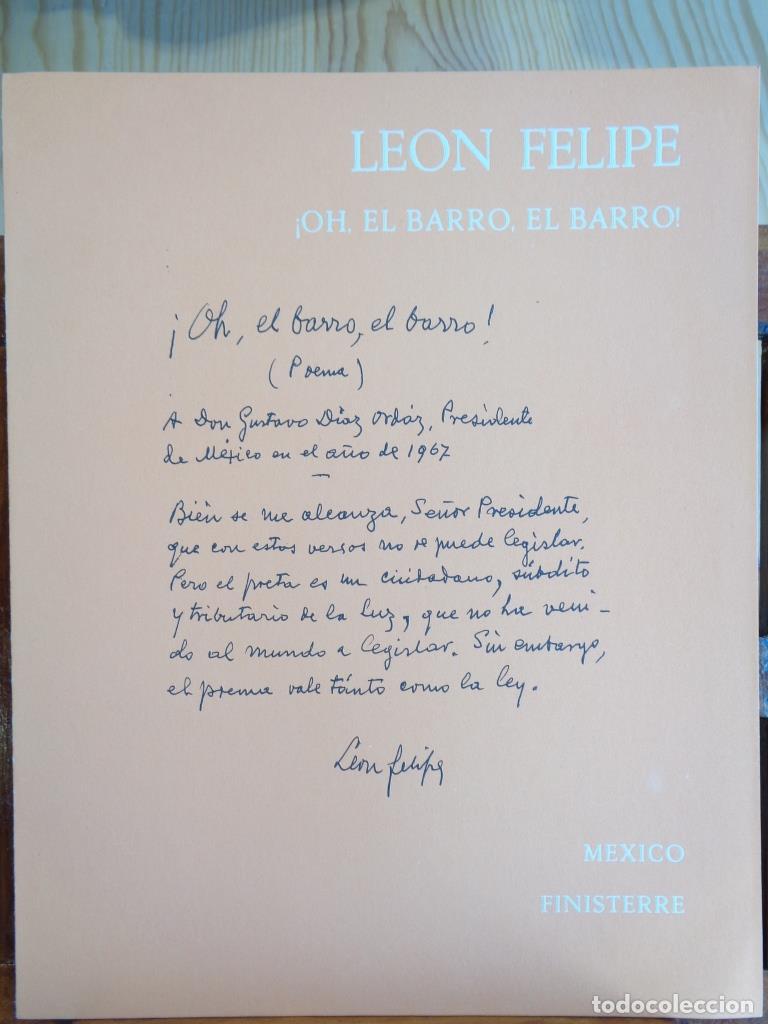 LEON FELIPE
¡OH, EL BARRO, EL BARRO!
¡Oh, el barro, el barro!
(Poema)
A Don Gustavo Díaz Ordáz, Presidente
de México en el año de 1967
—
Bién se me alcanza, Señor Presidente,
que con estos versos no se puede legislar.
Pero el poeta es un ciudadano, súbdito
y tributario de la Luz, que no ha veni-
do al mundo a legislar. Sin embargo,
el poema vale tánto como la ley.
León felipe
MEXICO
FINISTERRE
todocoleccion